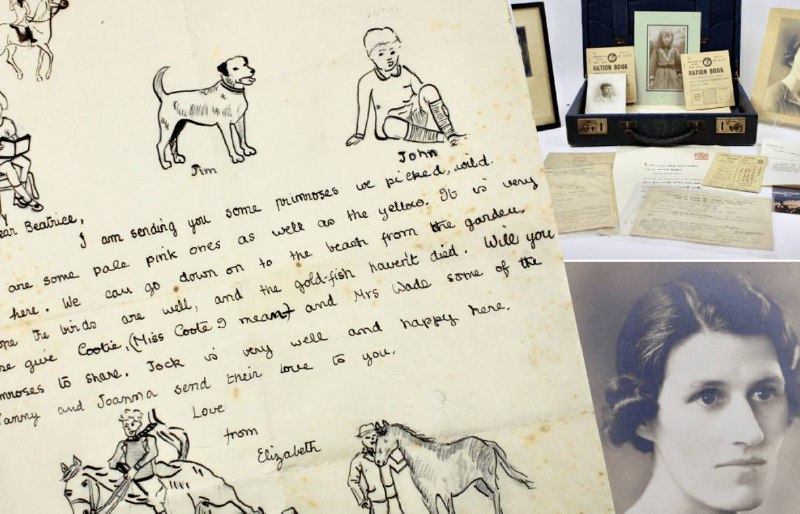 John
Jim
John
ear Beatrice,
I am sending you some primroses we picked, wild.
are some pale pink ones as well as the yellow. It is very
here. We can go down on to the beach from the garden.
ope the birds are well, and the gold-fish haven't died. Will you
se give Cootie, (Miss Coote I mean) and Mrs Wade some of the
mroses to share. Jock is very well and happy here.
anny and Joanna send their love to you.
Love
from
Elizabeth
RATION BOOK
RATION BOOK